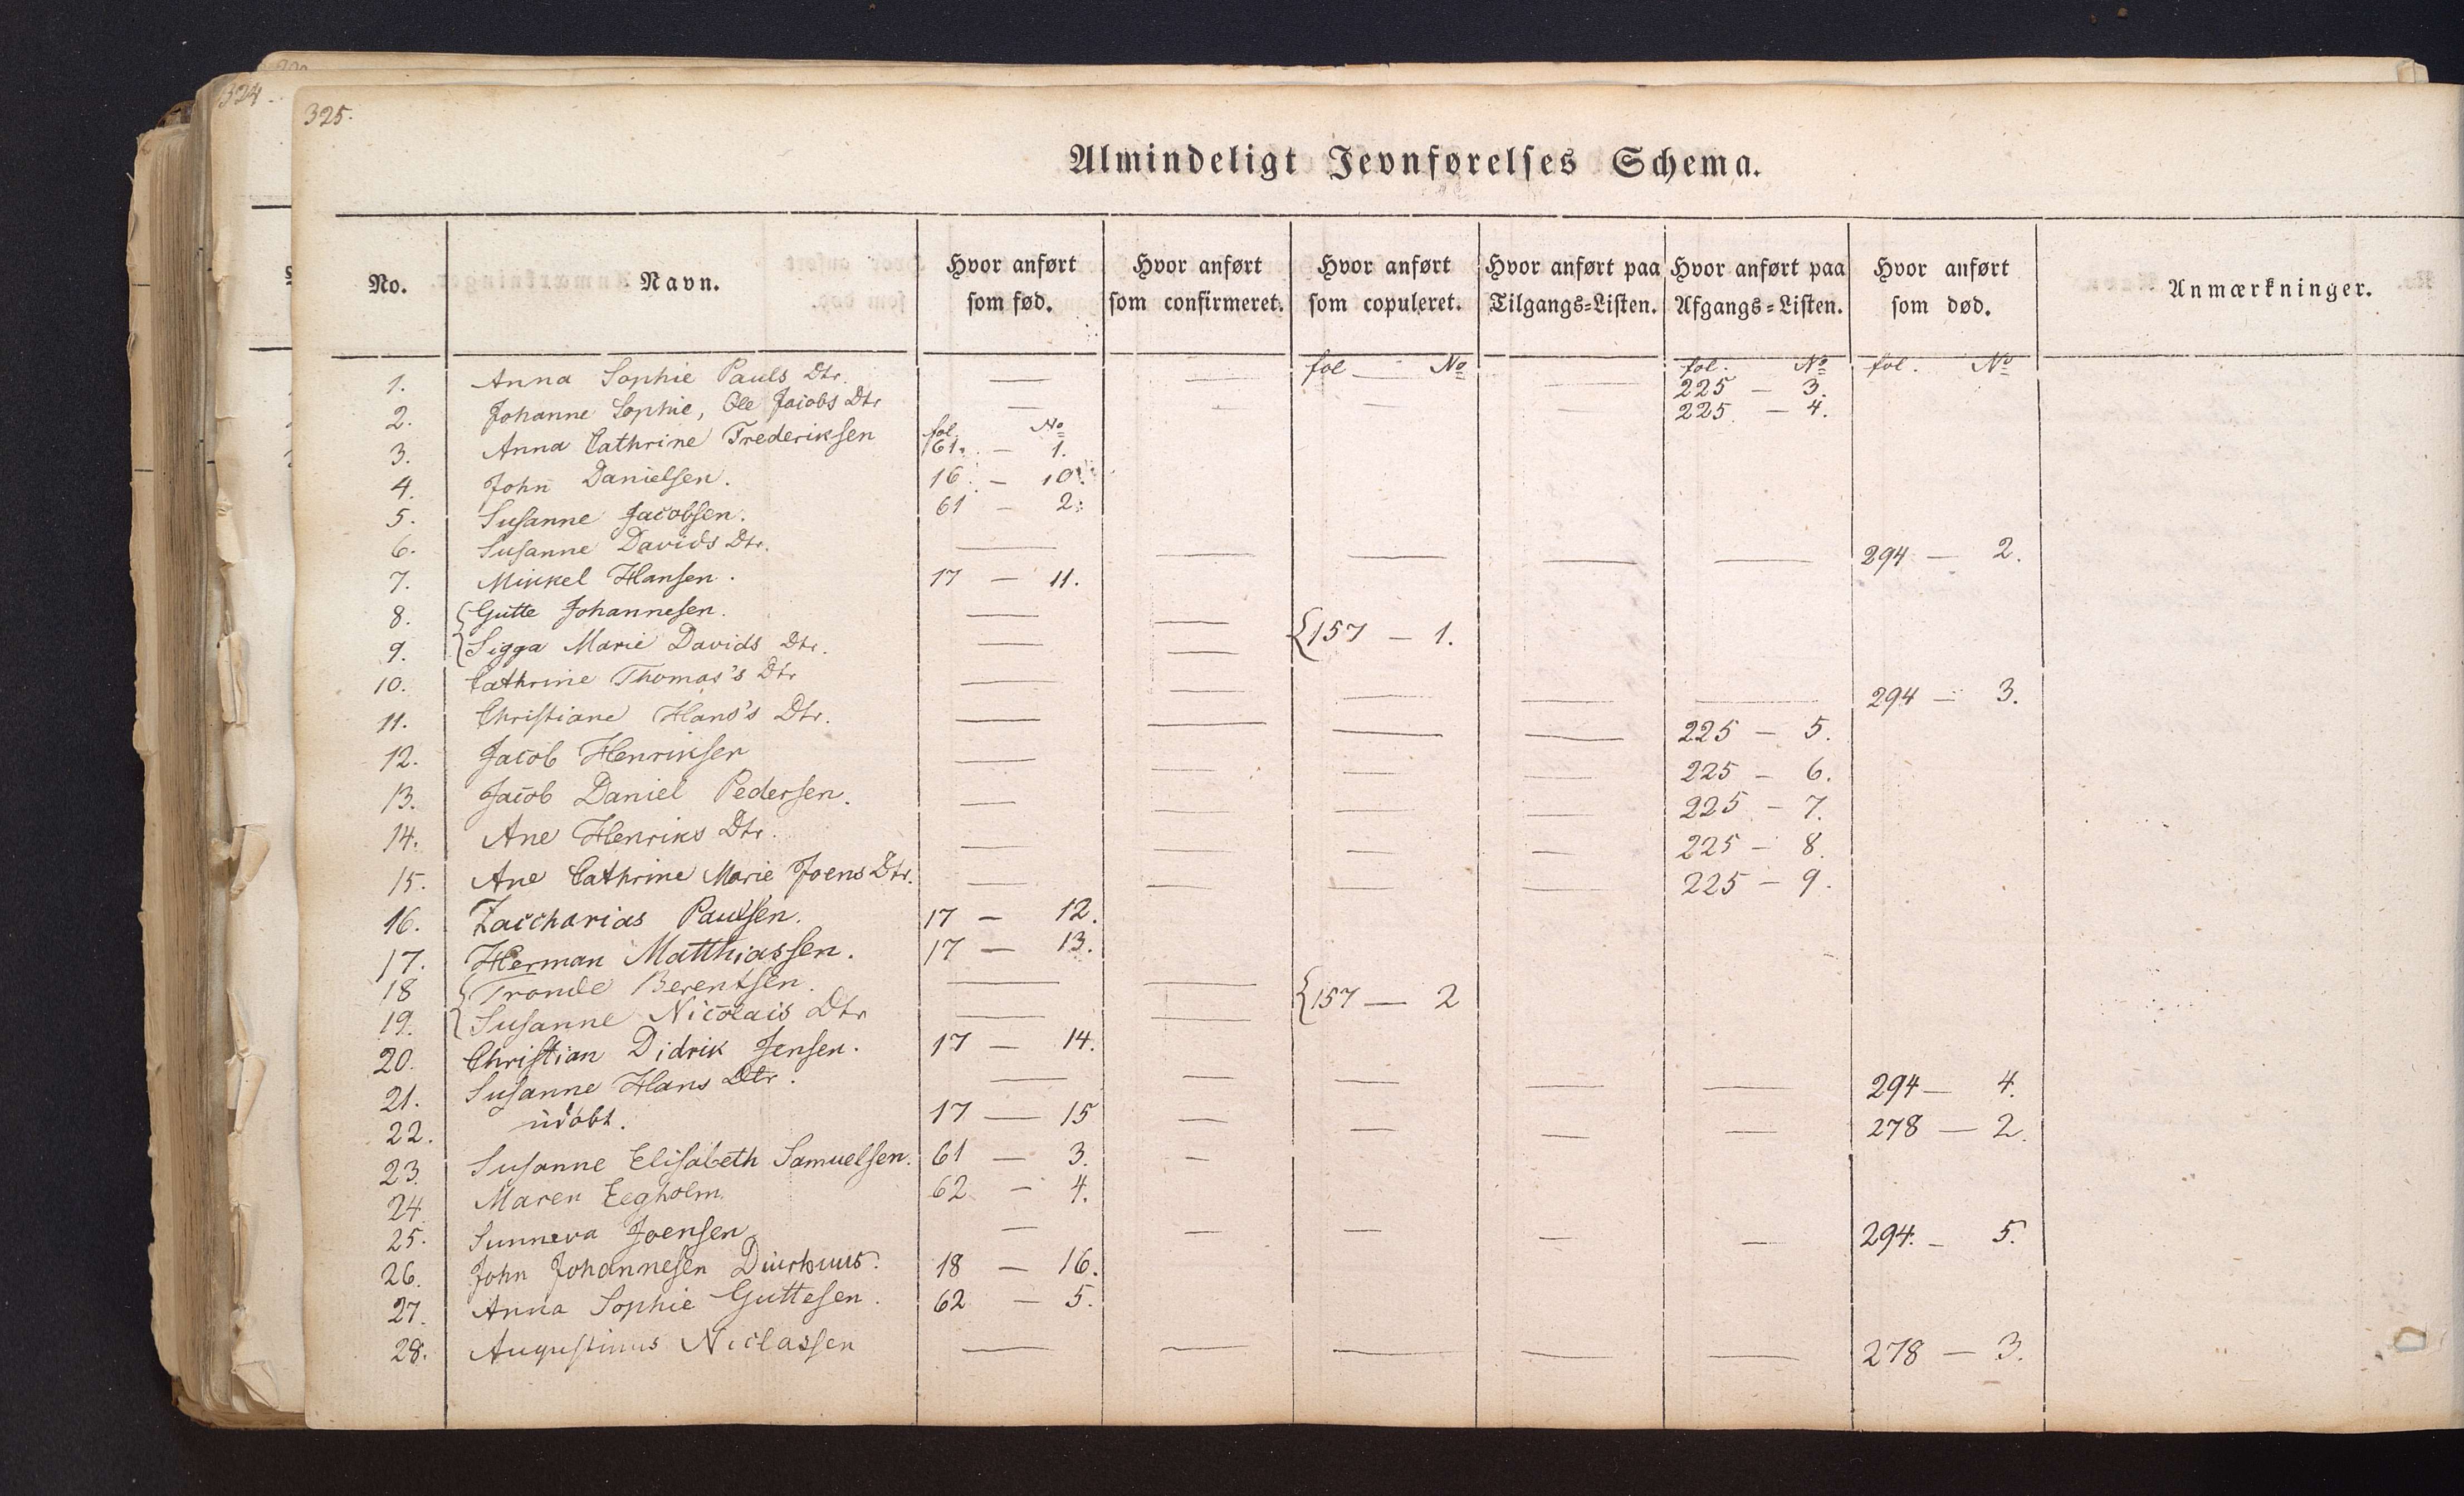 324.
325.
Almindeligt Jevnførelses Schema.
No. Navn. Hvor anført som fød. Hvor anført som confirmeret. Hvor anført som copuleret. Hvor anført paa Tilgangs-Listen. Hvor anført paa Afgangs-Listen. Hvor anført som død. Anmærkninger.
fol — No fol. No fol. No
1. Anna Sophie Pauls Dtr. — — — 225 — 3.
2. Johanne Sophie, Ole Jacobs Dtr — — — — 225 — 4.
fol. No
3. Anna Cathrine Frederiksen 61. — 1.
4. John Danielsen. 16. — 10.
5. Susanne Jacobsen. 61 — 2.
6. Susanne Davids Dtr. — — — — — 294 — 2.
7. Mikkel Hansen. 17 — 11.
8. { Gutte Johannesen. — — { 157 — 1.
9. { Sigga Marie Davids Dtr. — —
10. Cathrine Thomas's Dtr — — — — — 294 — 3.
11. Christiane Hans's Dtr. — — — — 225 — 5.
12. Jacob Henriksen — — — — 225 — 6.
13. Jacob Daniel Pedersen. — — — — 225 — 7.
14. Ane Henriks Dtr. — — — — 225 — 8.
15. Ane Cathrine Marie Joens Dtr. — — — — 225 — 9.
16. Zaccharias Paulsen. 17 — 12.
17. Herman Matthiassen. 17 — 13.
18 { Tronde Berentsen. — — { 157 — 2
19. { Susanne Nicolais Dtr — —
20. Christian Didrik Jensen. 17 — 14.
21. Susanne Hans Dtr. — — — — — 294 — 4.
22. udøbt. 17 — 15 — — — — 278 — 2.
23. Susanne Elisabeth Samuelsen. 61 — 3. —
24. Maren Eegholm. 62 — 4.
25. Sunneva Joensen — — — — — 294. — 5.
26. John Johannesen Diurhuus. 18 — 16.
27. Anna Sophie Guttesen. 62 — 5.
28. Augustinus Niclassen — — — — — 278 — 3.